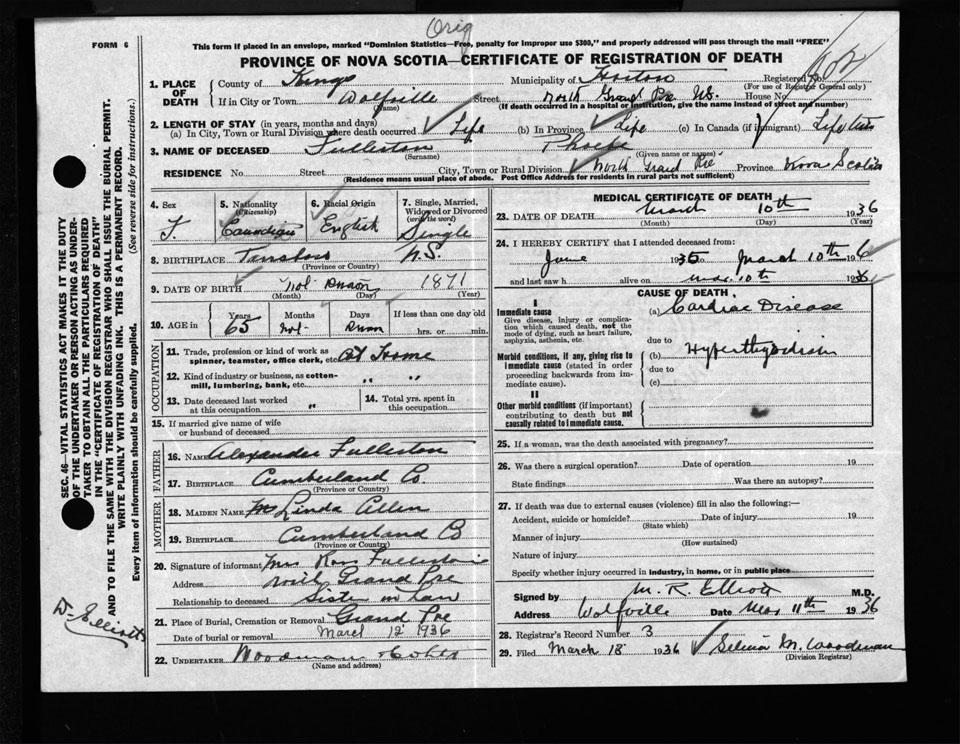 Orig
FORM 6
This form if placed in an envelope, marked "Dominion Statistics—Free, penalty for improper use $300," and properly addressed will pass through the mail "FREE"
PROVINCE OF NOVA SCOTIA—CERTIFICATE OF REGISTRATION OF DEATH
1. PLACE OF DEATH
County of Kings Municipality of Horton Registered No.
(For use of Registrar General only)
If in City or Town Wolfville Street North Grand Pre NS. House No.
(Name) (If death occurred in a hospital or institution, give the name instead of street and number)
2. LENGTH OF STAY (in years, months and days)
(a) In City, Town or Rural Division where death occurred Life (b) In Province Life (c) In Canada (if immigrant) Life
3. NAME OF DECEASED Fullerton Phoebe
(Surname) (Given name or names)
RESIDENCE No. Street City, Town or Rural Division North Grand Pre Province Nova Scotia
(Residence means usual place of abode. Post Office Address for residents in rural parts not sufficient)
4. Sex F.
5. Nationality (Citizenship) Canadian
6. Racial Origin English
7. Single, Married, Widowed or Divorced (write the word) Single
8. BIRTHPLACE N.S.
(Province or Country)
9. DATE OF BIRTH Not Known 1871
(Month) (Day) (Year)
10. AGE in Years Months Days If less than one day old
65 not Known hrs. or min.
OCCUPATION
11. Trade, profession or kind of work as spinner, teamster, office clerk, etc. At Home
12. Kind of industry or business, as cotton-mill, lumbering, bank, etc. " "
13. Date deceased last worked at this occupation "
14. Total yrs. spent in this occupation
15. If married give name of wife or husband of deceased
FATHER
16. NAME Alexander Fullerton
17. BIRTHPLACE Cumberland Co.
(Province or Country)
MOTHER
18. MAIDEN NAME Linda Allen
19. BIRTHPLACE Cumberland Co
(Province or Country)
20. Signature of informant Mrs Fullerton
Address North Grand Pre
Relationship to deceased Sister in Law
21. Place of Burial, Cremation or Removal Grand Pre
Date of burial or removal March 12 1936
22. UNDERTAKER Woodman
(Name and address)
MEDICAL CERTIFICATE OF DEATH
23. DATE OF DEATH March 10th 1936
(Month) (Day) (Year)
24. I HEREBY CERTIFY that I attended deceased from:
June 1935 to March 10th 1936
and last saw h alive on Mar 10th 1936
CAUSE OF DEATH
I
Immediate cause
Give disease, injury or complication which caused death, not the mode of dying, such as heart failure, asphyxia, asthenia, etc.
(a) Cardiac Disease
due to
Morbid conditions, if any, giving rise to immediate cause (stated in order proceeding backwards from immediate cause).
(b) Hyperthyroidism
due to
(c)
II
Other morbid conditions (if important) contributing to death but not causally related to immediate cause.
25. If a woman, was the death associated with pregnancy?
26. Was there a surgical operation? Date of operation 19
State findings Was there an autopsy?
27. If death was due to external causes (violence) fill in also the following:—
Accident, suicide or homicide? Date of injury 19
(State which)
Manner of injury
(How sustained)
Nature of injury
Specify whether injury occurred in industry, in home, or in public place
Signed by M. R. Elliott M.D.
Address Wolfville Date Mar 11th 1936
28. Registrar's Record Number 3
29. Filed March 18 1936 Selina M. Woodman
(Division Registrar)
SEC. 46—VITAL STATISTICS ACT MAKES IT THE DUTY OF THE UNDERTAKER OR PERSON ACTING AS UNDERTAKER TO OBTAIN ALL THE PARTICULARS REQUIRED IN THE "CERTIFICATE OF REGISTRATION OF DEATH" AND TO FILE THE SAME WITH THE DIVISION REGISTRAR WHO SHALL ISSUE THE BURIAL PERMIT.
WRITE PLAINLY WITH UNFADING INK. THIS IS A PERMANENT RECORD.
Every item of information should be carefully supplied. (See reverse side for instructions.)
Dr. Elliott